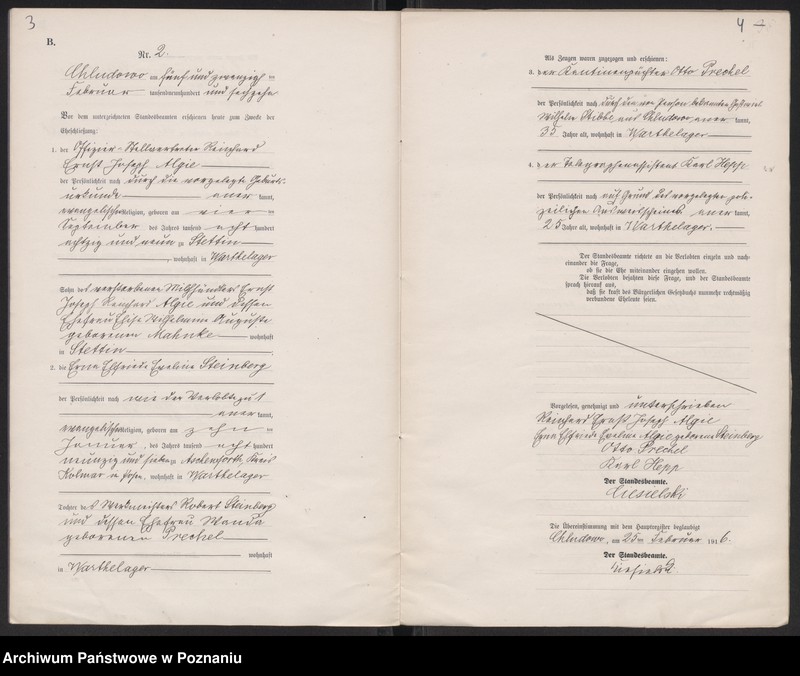 3
B.
Nr. 2.
Chludowo am fünf und zwanzigsten
Februar tausendneunhundert und sechzehn
Vor dem unterzeichneten Standesbeamten erschienen heute zum Zwecke der
Eheschließung:
1. der Offizier-Stellvertreter Reinhard
Ernst Joseph Algie
der Persönlichkeit nach durch die vorgelegte Geburts-
urkunde anerkannt,
evangelischer Religion, geboren am vier ten
September des Jahres tausend acht hundert
achtzig und neun zu Stettin
, wohnhaft in Warthelager
Sohn des verstorbenen Milchhändlers Ernst
Joseph Reinhard Algie und dessen
Ehefrau Elise Wilhelmine Auguste
geborenen Mahnke wohnhaft
in Stettin
2. die Erna Elfriede Eveline Steinberg
der Persönlichkeit nach wie der Verlobte zu 1
anerkannt,
evangelischer Religion, geboren am zehn ten
Januar, des Jahres tausend acht hundert
neunzig und sieben zu Kreis
Kolmar in Posen, wohnhaft in Warthelager
Tochter des Werkmeisters Robert Steinberg
und dessen Ehefrau Wanda
geborenen Prechel
wohnhaft
in Warthelager
4
Als Zeugen waren zugezogen und erschienen:
3. der Kantinenpächter Otto Prechel
der Persönlichkeit nach durch den von Person bekannten
Wilhelm aus Chludowo anerkannt,
35 Jahre alt, wohnhaft in Warthelager
4. der Telegraphenassistent Karl Hepp
der Persönlichkeit nach auf Grund des vorgelegten poli-
zeilichen anerkannt,
25 Jahre alt, wohnhaft in Warthelager.
Der Standesbeamte richtete an die Verlobten einzeln und nach-
einander die Frage,
ob sie die Ehe miteinander eingehen wollen.
Die Verlobten bejahten diese Frage, und der Standesbeamte
sprach hierauf aus,
daß sie kraft des Bürgerlichen Gesetzbuchs nunmehr rechtmäßig
verbundene Eheleute seien.
Vorgelesen, genehmigt und unterschrieben
Reinhard Ernst Joseph Algie
Erna Elfriede Eveline Algie geborene Steinberg
Otto Prechel
Karl Hepp
Der Standesbeamte.
Ciesielski
Die Übereinstimmung mit dem Hauptregister beglaubigt
Chludowo, am 25ten Februar 1916.
Der Standesbeamte.
Archiwum Państwowe w Poznaniu